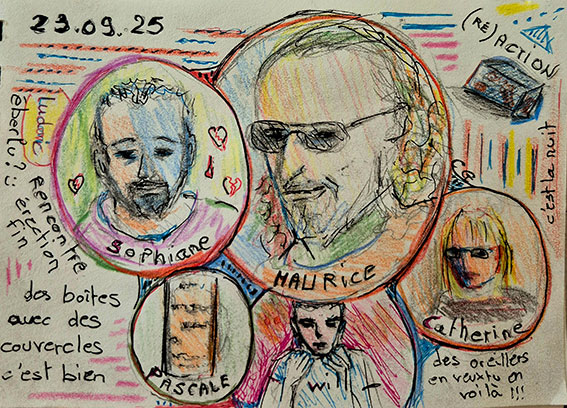 23.09.25
(RE)ACTION
Sophiane
MAURICE
Catherine
PASCALE
will
c'est la nuit
rencontre
érection
fin
des boîtes
avec des
couvercles
c'est bien
des oreillers
en veux tu en
voilà !!!